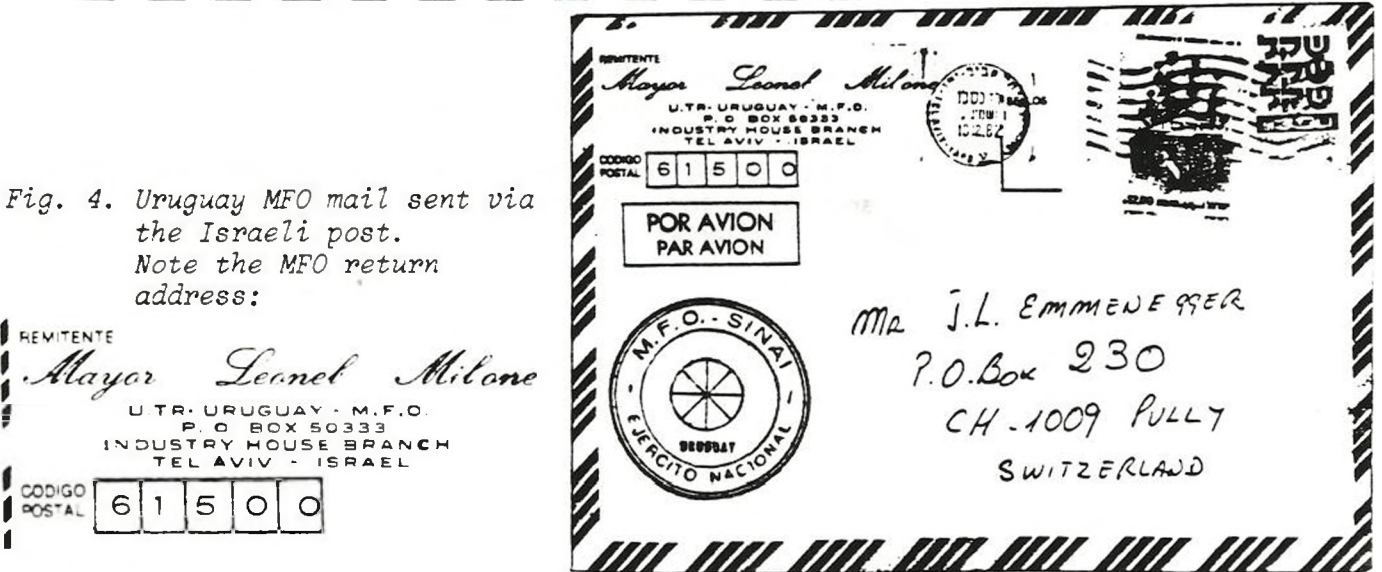 Fig. 4. Uruguay MFO mail sent via
the Israeli post.
Note the MFO return
address:
REMITENTE
Mayor Leonel Milone
U.TR. URUGUAY - M.F.O.
P. O BOX 50333
INDUSTRY HOUSE BRANCH
TEL AVIV - ISRAEL
CODIGO
POSTAL
6 1 5 0 0
REMITENTE
Mayor Leonel Milone
U.TR. URUGUAY - M.F.O.
P. O BOX 50333
INDUSTRY HOUSE BRANCH
TEL AVIV - ISRAEL
CODIGO
POSTAL
6 1 5 0 0
POR AVION
PAR AVION
M.F.O. - SINAI
URUGUAY
EJERCITO NACIONAL
שקל
שקל
שקל
MR J.L. EMMENEGGER
P.O.Box 230
CH-1009 PULLY
SWITZERLAND